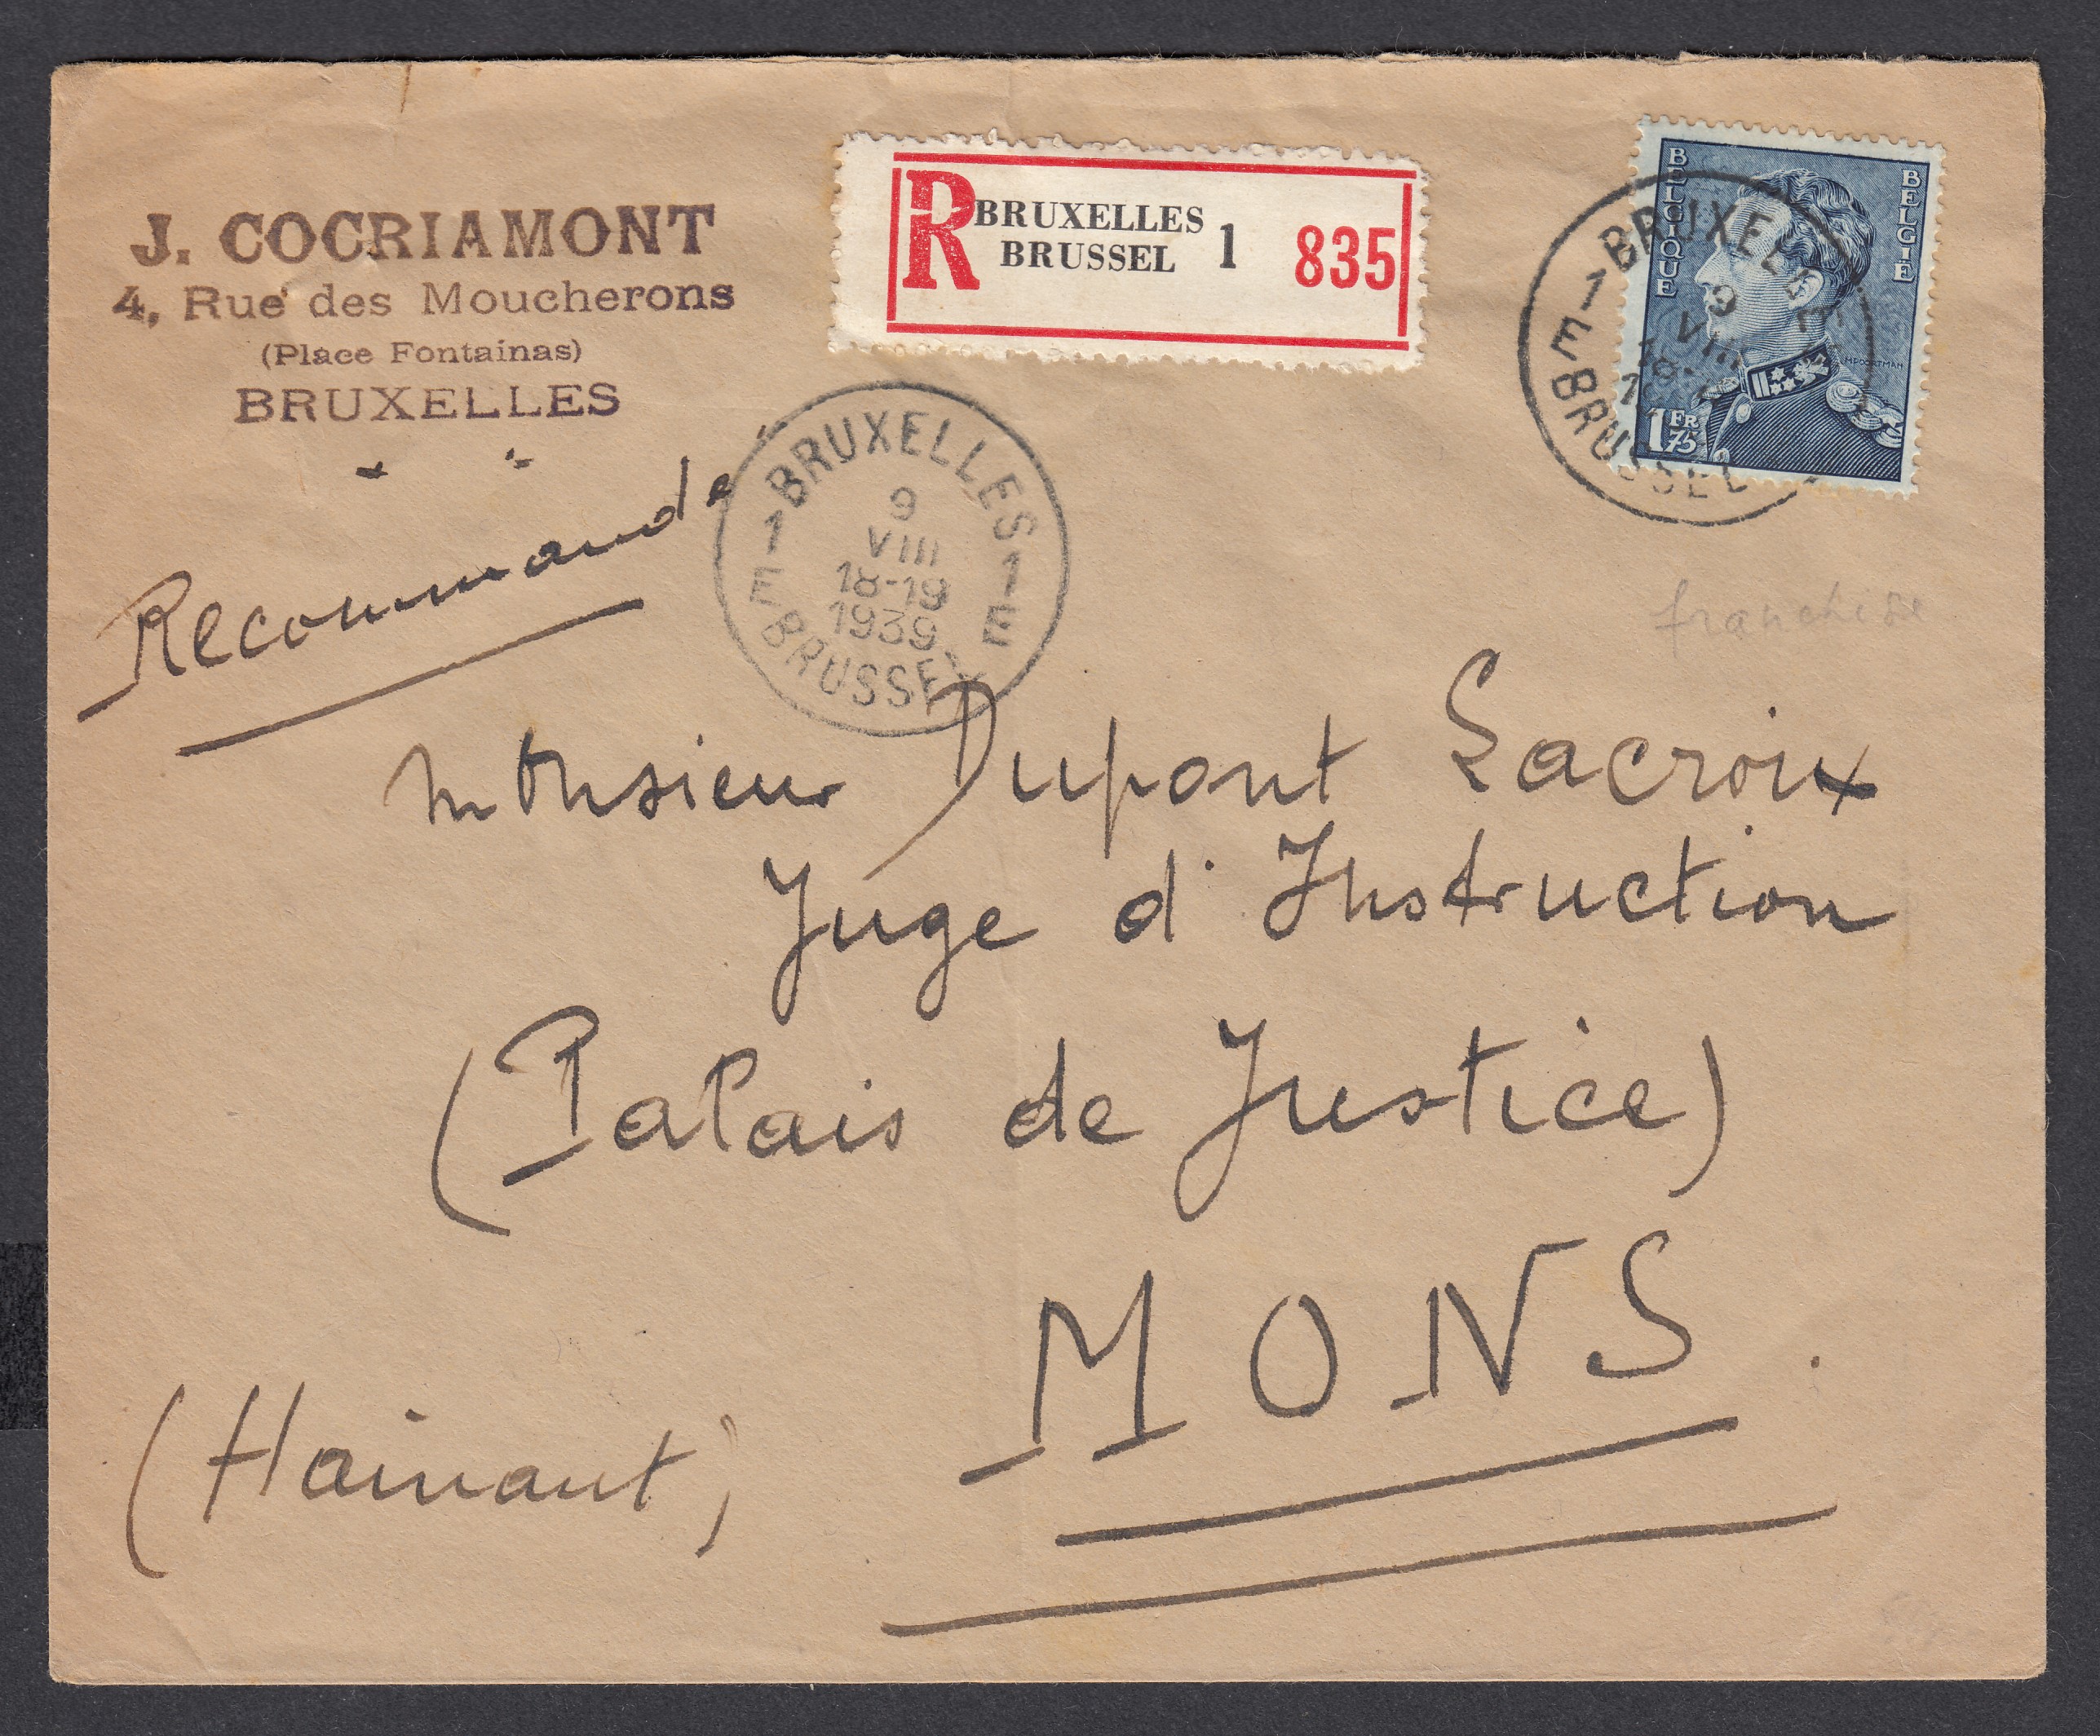 J. COCRIAMONT
4, Rue des Moucherons
(Place Fontainas)
BRUXELLES
R BRUXELLES
BRUSSEL 1 835
BELGIQUE
BELGIE
1 FR 75
BRUXELLES
1 9
VIII
E BRUSSEL
Recommandé
BRUXELLES
1 9 1
VIII
E 18-19 E
1939
BRUSSEL
franchise
Monsieur Dupont Lacroix
Juge d'Instruction
(Palais de Justice)
MONS.
(Hainaut)